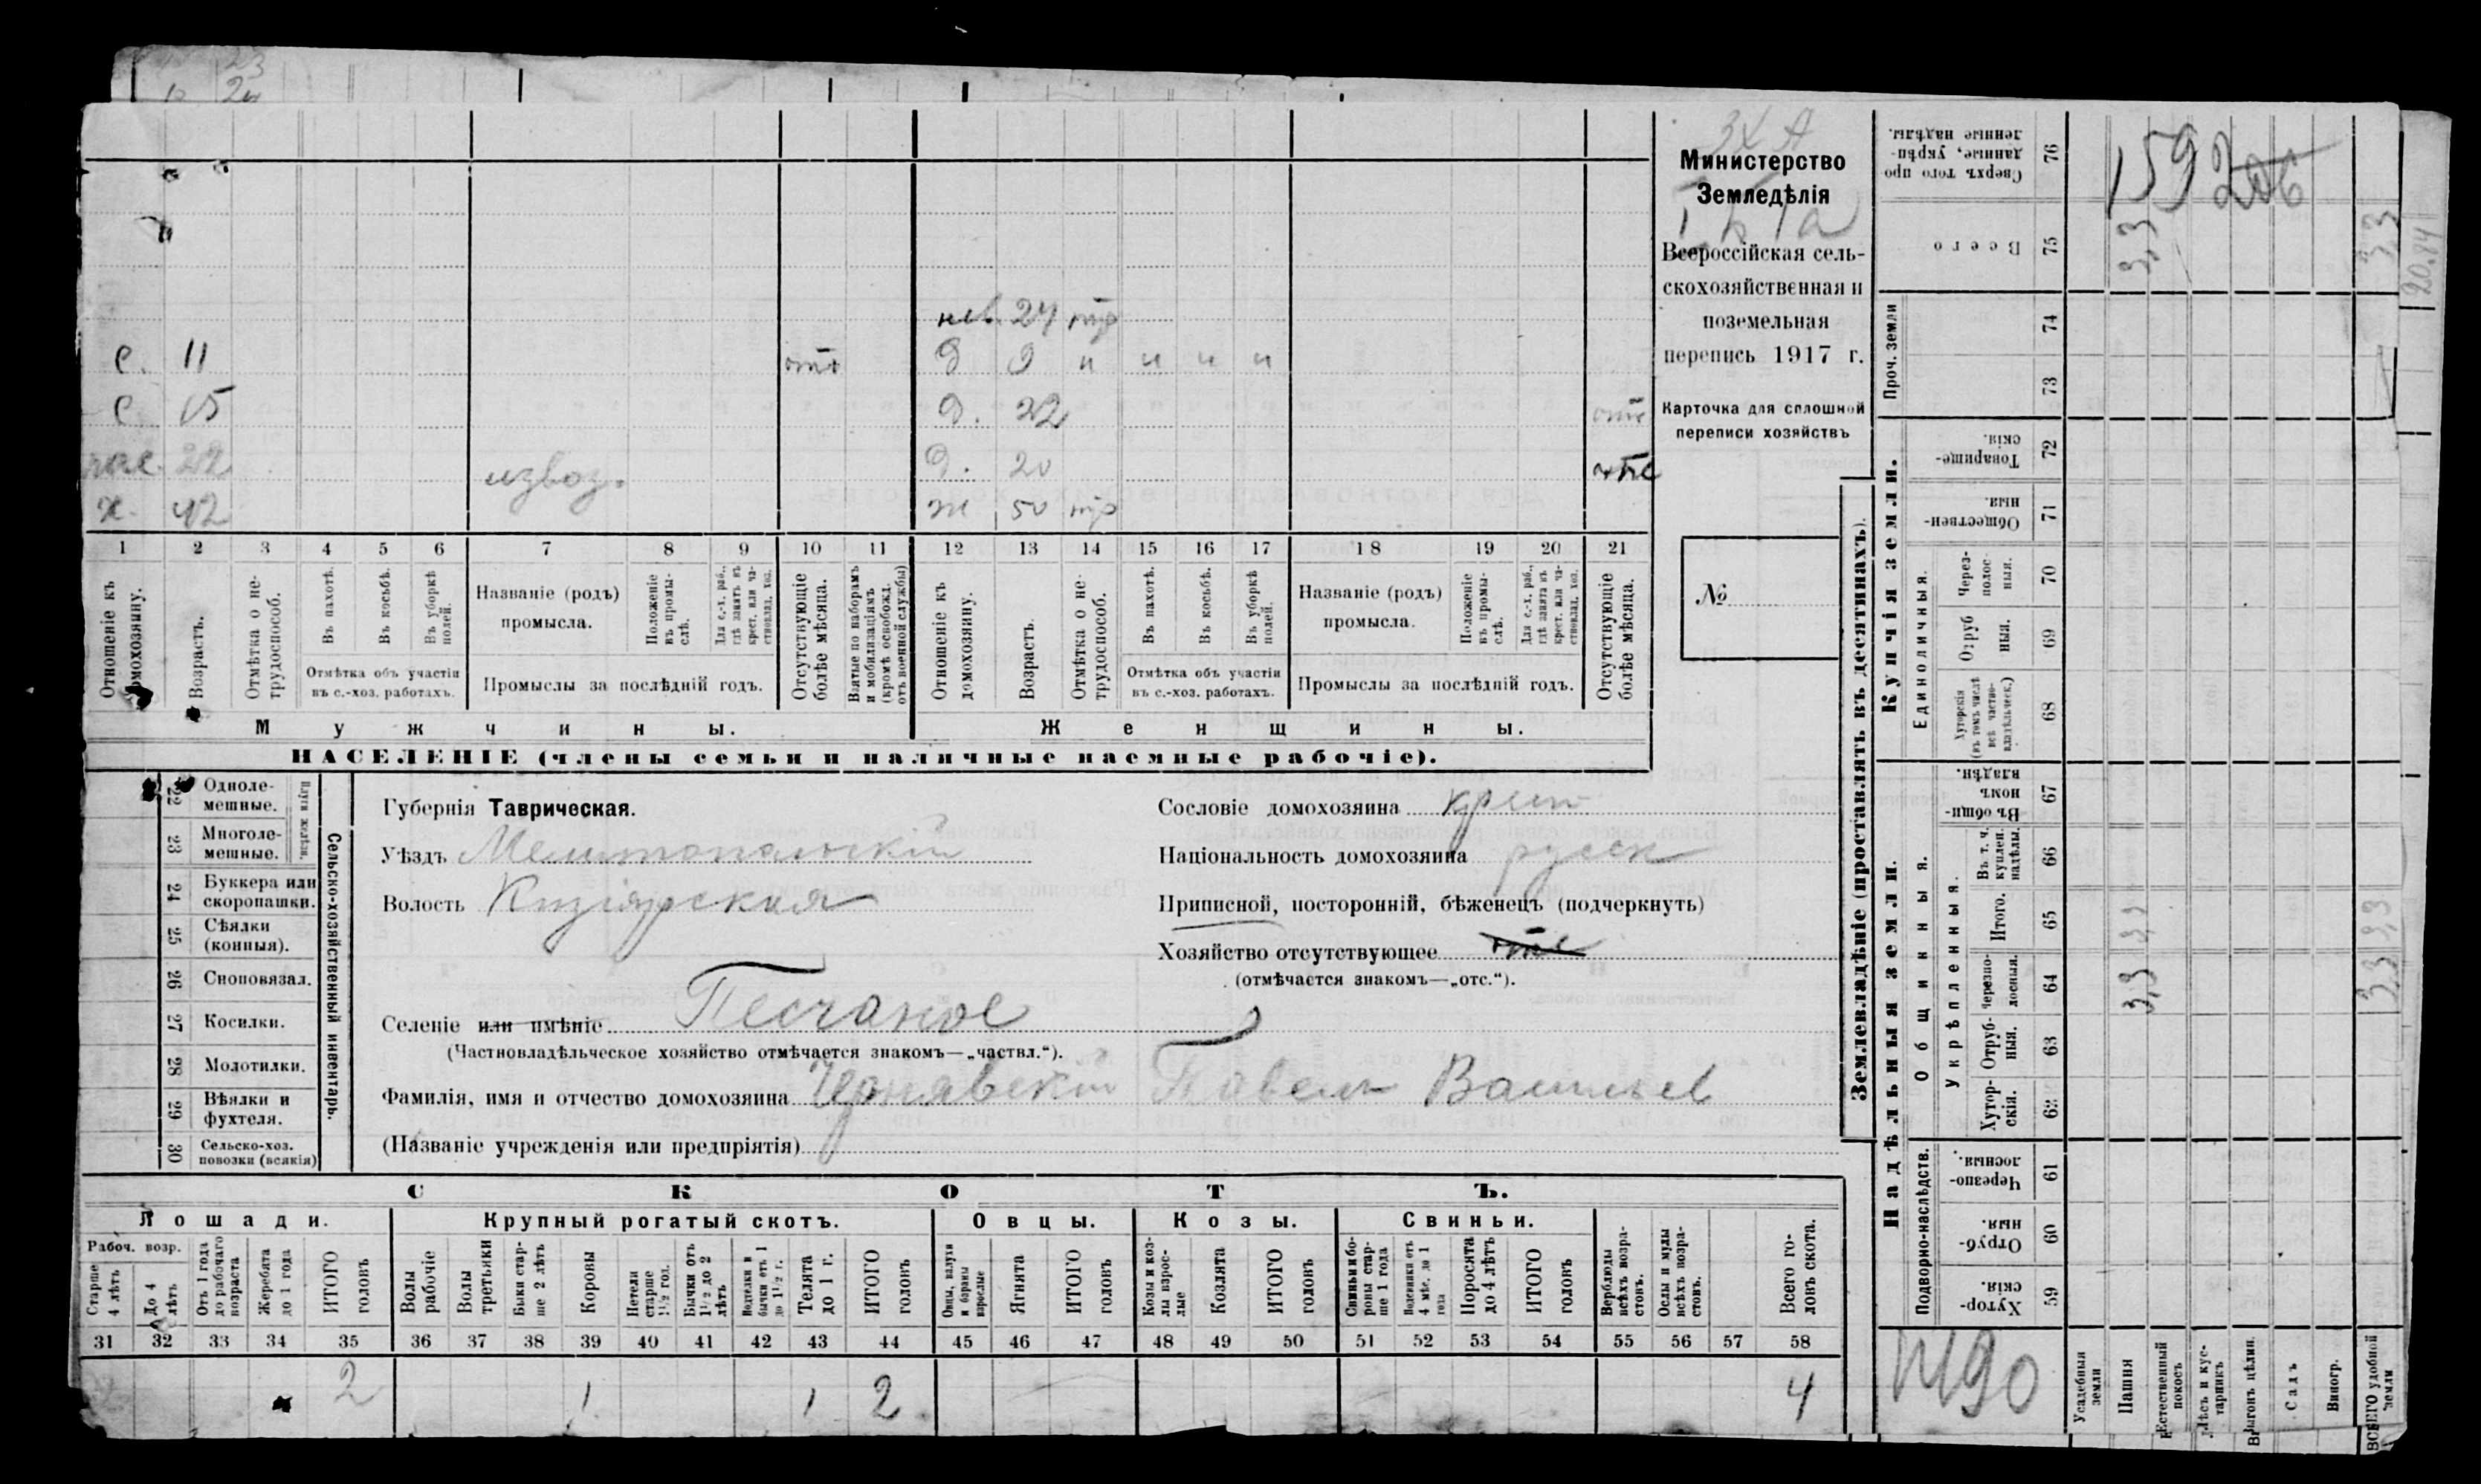 23
2и
Министерство
Земледѣлія
Всероссійская сель-
скохозяйственная и
поземельная
перепись 1917 г.
Карточка для сплошной
переписи хозяйствъ
№
нев. 24 тр
с. 11 отс д 9 и и и и
с. 15 д. 22 отс
22 извоз. д. 20 отс
х. 42 ж 50 тр
1 2 3 4 5 6 7 8 9 10 11 12 13 14 15 16 17 18 19 20 21
Отношеніе къ домохозяину.
Возрастъ.
Отмѣтка о не-трудоспособ.
Въ пахотѣ.
Въ косьбѣ.
Въ уборкѣ полей.
Отмѣтка объ участіи въ с.-хоз. работахъ.
Названіе (родъ) промысла.
Положеніе въ промы-слѣ.
Для с.-х. раб., гдѣ занятъ въ крест. или ча-стновлад. хоз.
Промыслы за послѣдній годъ.
Отсутствующіе болѣе мѣсяца.
Взятые по наборамъ и мобилизаціямъ (кромѣ освобожд. отъ военной службы)
Отношеніе къ домохозяину.
Возрастъ.
Отмѣтка о не-трудоспособ.
Въ пахотѣ.
Въ косьбѣ.
Въ уборкѣ полей.
Отмѣтка объ участіи въ с.-хоз. работахъ.
Названіе (родъ) промысла.
Положеніе въ промы-слѣ.
Для с.-х. раб., гдѣ занята въ крест. или ча-стновлад. хоз.
Промыслы за послѣдній годъ.
Отсутствующіе болѣе мѣсяца.
Мужчины. Женщины.
НАСЕЛЕНІЕ (члены семьи и наличные наемные рабочіе).
22 Одноле-мешные.
23 Многоле-мешные.
Плуги желѣзн.
24 Буккера или скоропашки.
25 Сѣялки (конныя).
26 Сноповязал.
27 Косилки.
28 Молотилки.
29 Вѣялки и фухтеля.
30 Сельско-хоз. повозки (всякія)
Сельско-хозяйственный инвентарь.
Губернія Таврическая.
Уѣздъ Мелитопольскій
Волость Кизіярская
Селеніе или имѣніе Песчаное
(Частновладѣльческое хозяйство отмѣчается знакомъ—„частвл.“).
Фамилія, имя и отчество домохозяина Чернявскій Павелъ Васильев
(Названіе учрежденія или предпріятія)
Сословіе домохозяина крест
Національность домохозяина русск
Приписной, посторонній, бѣженецъ (подчеркнуть)
Хозяйство отсутствующее отс
(отмѣчается знакомъ—„отс.“).
СКОТЪ.
Лошади. Крупный рогатый скотъ. Овцы. Козы. Свиньи.
Рабоч. возр.
Старше 4 лѣтъ
До 4 лѣтъ
Отъ 1 года до рабочаго возраста
Жеребята до 1 года
ИТОГО головъ
Волы рабочіе
Волы третьяки
Быки стар-ше 2 лѣтъ
Коровы
Нетели старше 1½ год.
Бычки отъ 1½ до 2 лѣтъ
Подтелки и бычки отъ 1 до 1½ г.
Телята до 1 г.
ИТОГО головъ
Овцы, валухи и бараны взрослые
Ягнята
ИТОГО головъ
Козы и коз-лы взрос-лые
Козлята
ИТОГО головъ
Свиньи и бо-ровы стар-ше 1 года
Подсвинки отъ 4 мѣс. до 1 года
Поросята до 4 лѣтъ
ИТОГО головъ
Верблюды всѣхъ возра-стовъ.
Ослы и мулы всѣхъ возра-стовъ.
Всего го-ловъ скота.
31 32 33 34 35 36 37 38 39 40 41 42 43 44 45 46 47 48 49 50 51 52 53 54 55 56 57 58
2 1 1 2 4
Землевладѣніе (проставлять въ десятинахъ).
Сверхъ того про-данные, укрѣп-ленные надѣлы. 76
159 206
Всего 75 3,3 3,3
20.84
Проч. земли 74 73
Купчія земли.
Товарище-скія. 72
Обществен-ныя. 71
Единоличныя.
Через-полос-ныя. 70
Отруб-ныя. 69
Хуторскія (въ томъ числѣ всѣ частно-владѣльческ.) 68
Надѣльныя земли.
Общинныя.
Въ общин-номъ владѣн. 67
Укрѣпленныя.
Въ т. ч. куплен. надѣлы. 66
Итого. 65 3,3 3,3
Черезпо-лосныя. 64 3,3 3,3
Отруб-ныя. 63
Хутор-скія. 62
Подворно-наслѣдств.
Черезпо-лосныя. 61
Отруб-ныя. 60
Хутор-скія. 59
№90
Усадебныя земли
Пашня
Естественный покосъ
Лѣсъ и кус-тарникъ
Выгонъ цѣлин.
Садъ
Виногр.
ВСЕГО удобной земли